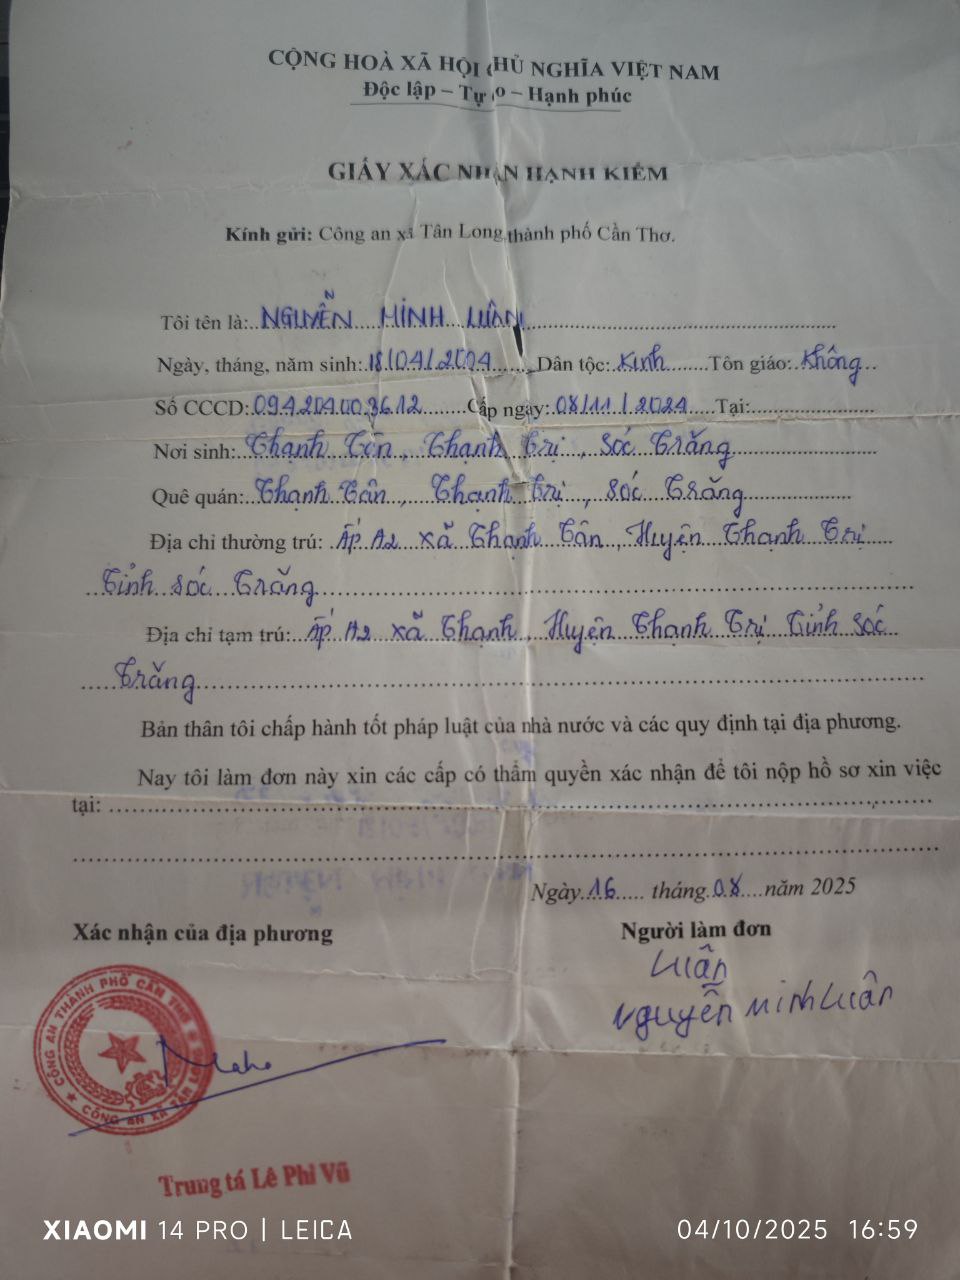 CỘNG HOÀ XÃ HỘI CHỦ NGHĨA VIỆT NAM
Độc lập – Tự do – Hạnh phúc
GIẤY XÁC NHẬN HẠNH KIỂM
Kính gửi: Công an xã Tân Long, thành phố Cần Thơ.
Tôi tên là: NGUYỄN MINH LUÂN
Ngày, tháng, năm sinh: 18/04/2004 Dân tộc: Kinh Tôn giáo: Không
Số CCCD: 094204003612 Cấp ngày: 08/11/2024 Tại:
Nơi sinh: Thạnh Tân, Thạnh Trị, Sóc Trăng
Quê quán: Thạnh Tân, Thạnh Trị, Sóc Trăng
Địa chỉ thường trú: ấp A2 xã Thạnh Tân, Huyện Thạnh Trị
Tỉnh Sóc Trăng
Địa chỉ tạm trú: ấp A2 xã Thạnh, Huyện Thạnh Trị Tỉnh Sóc
Trăng
Bản thân tôi chấp hành tốt pháp luật của nhà nước và các quy định tại địa phương.
Nay tôi làm đơn này xin các cấp có thẩm quyền xác nhận để tôi nộp hồ sơ xin việc
tại:
Ngày 16 tháng 08 năm 2025
Xác nhận của địa phương Người làm đơn
Luân
Nguyễn Minh Luân
CÔNG AN THÀNH PHỐ CẦN THƠ
CÔNG AN XÃ TÂN LONG
Trung tá Lê Phi Vũ
XIAOMI 14 PRO | LEICA 04/10/2025 16:59